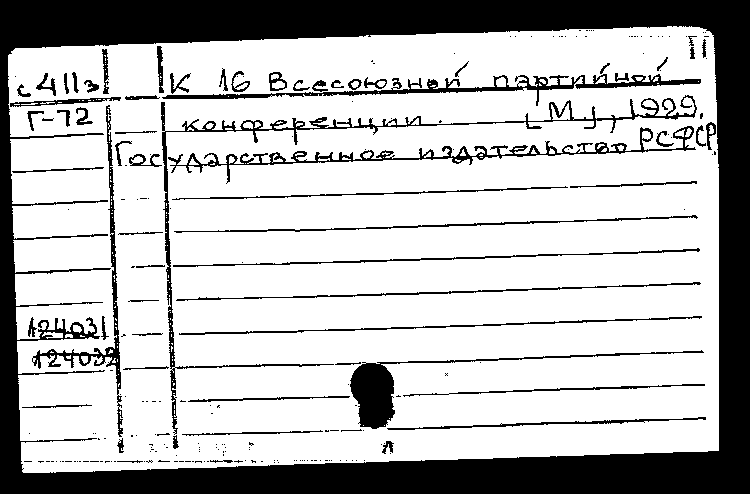 II
с411з К 16 Всесоюзной партийной
Г-72 конференции. [М], 1929.
Государственное издательство РСФСР
124031
124032
л